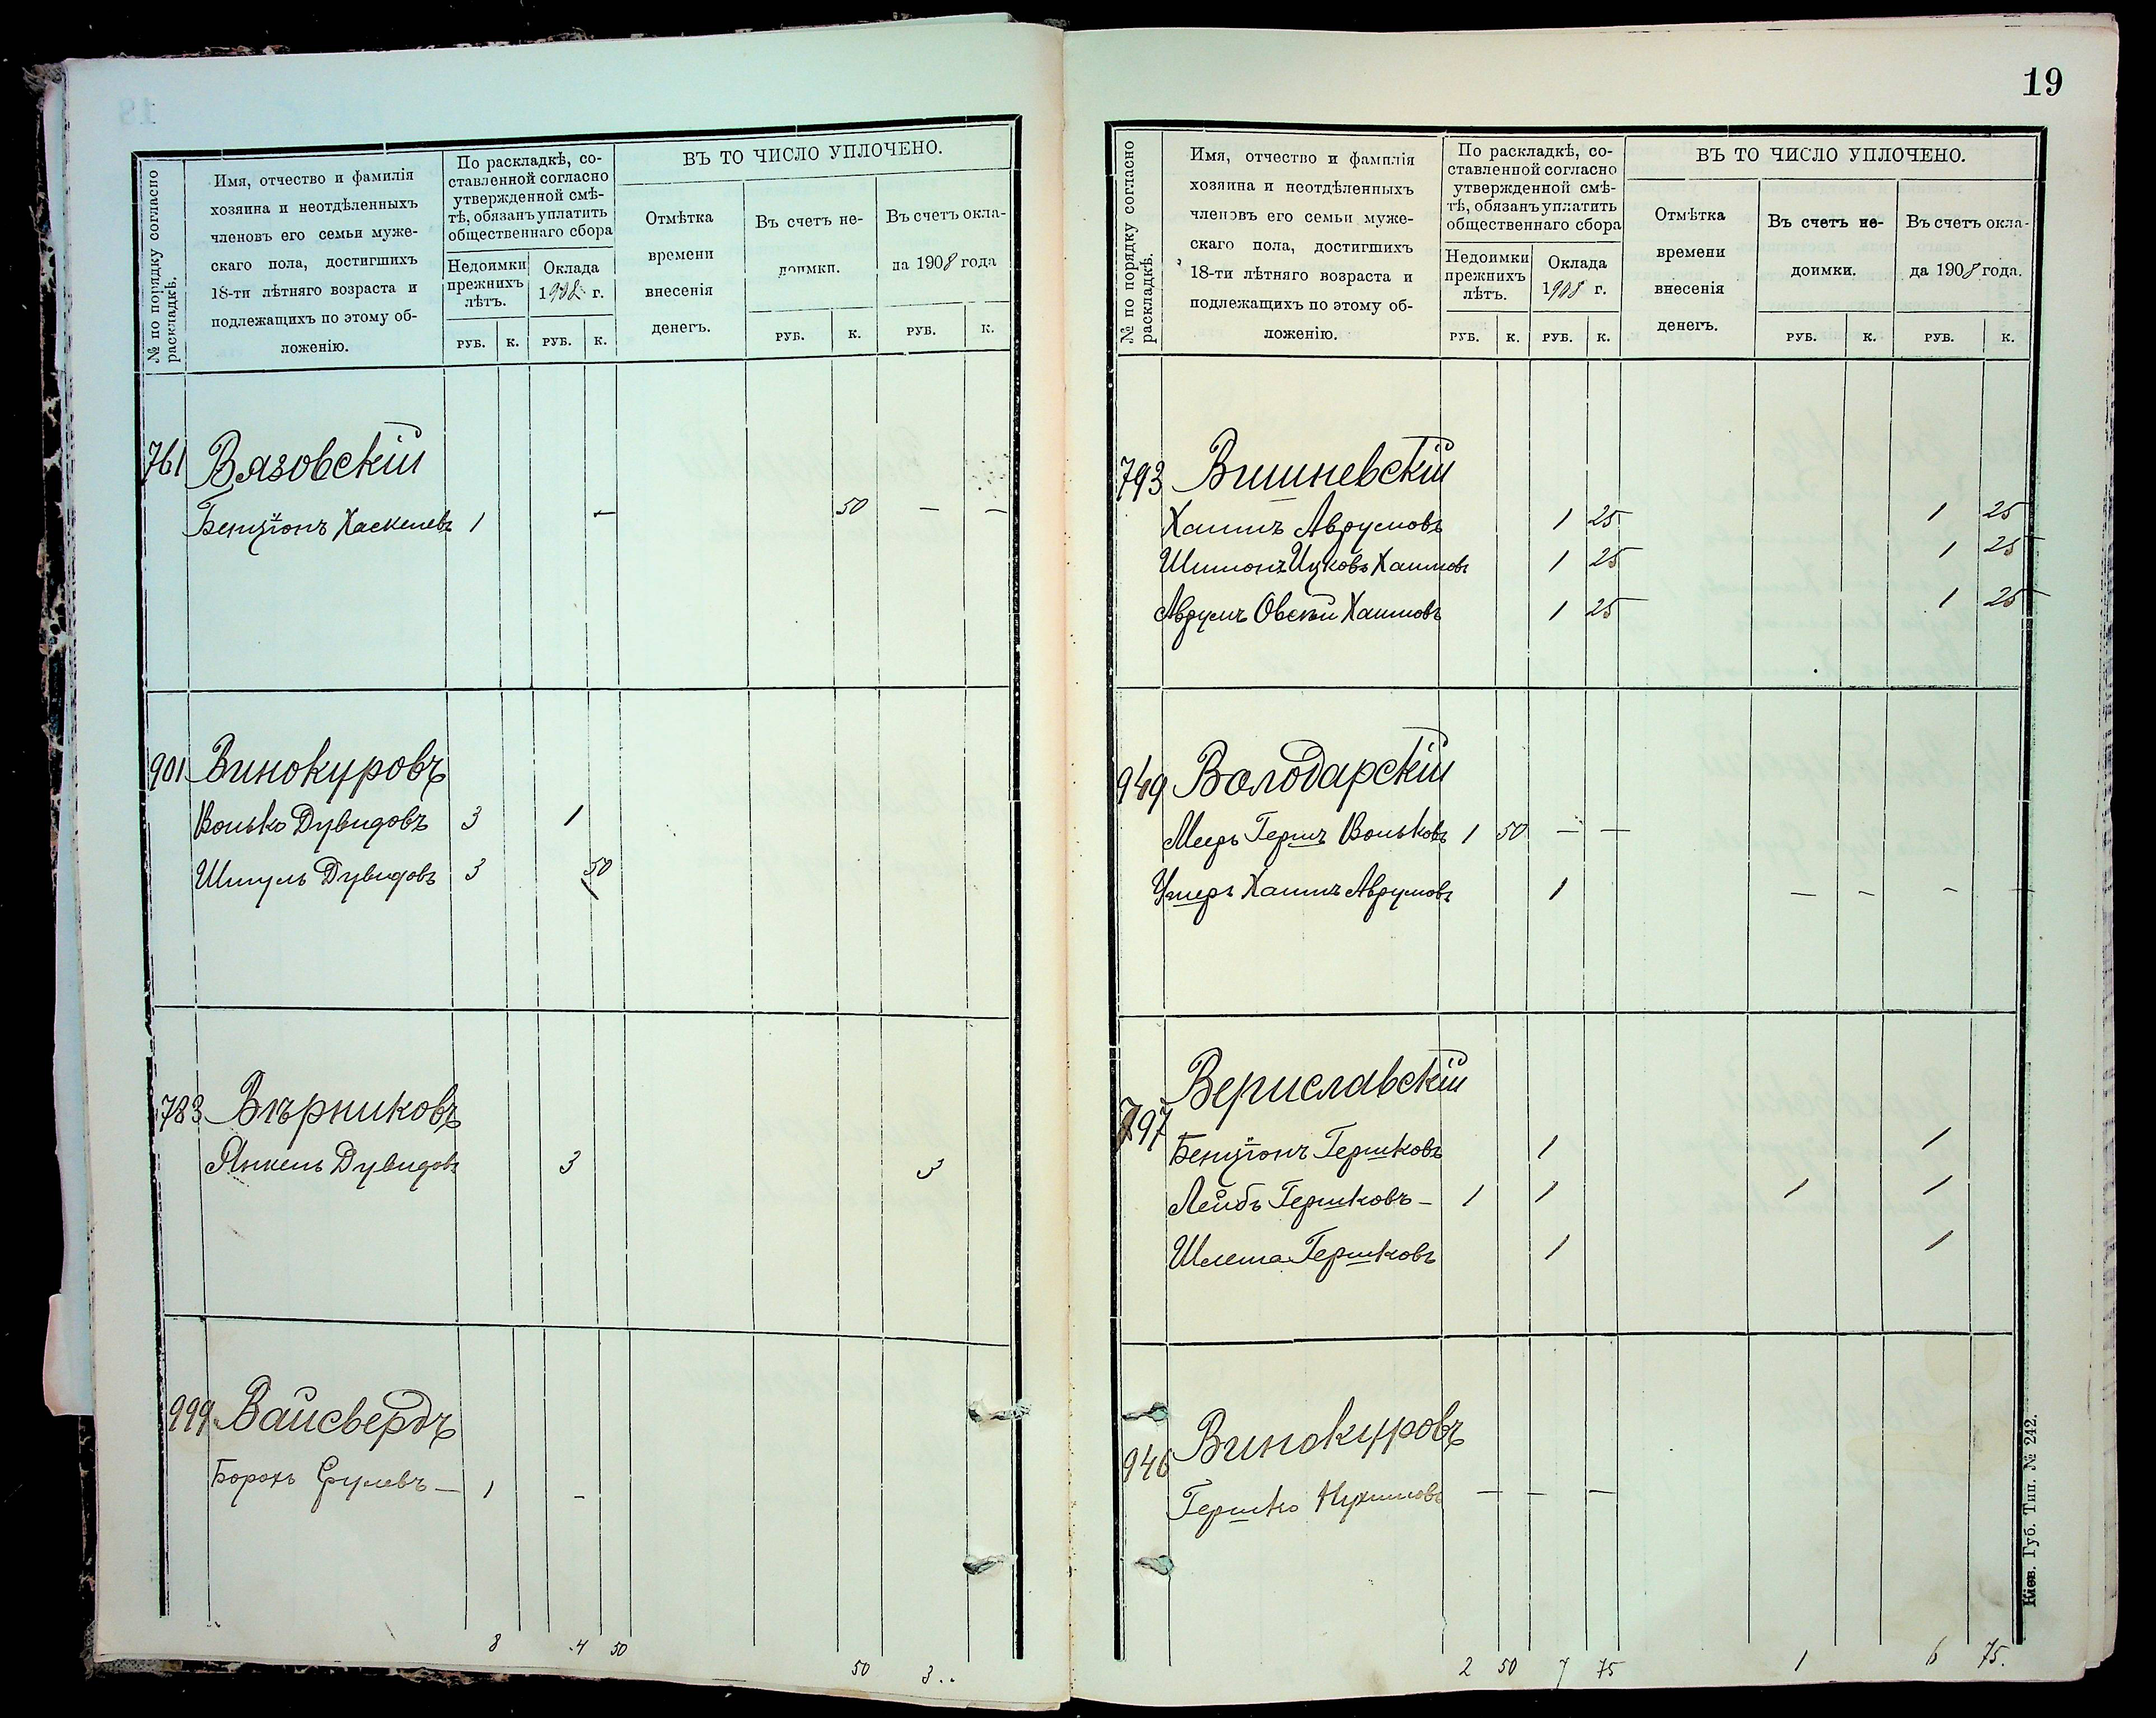 19
№ по порядку согласно раскладкѣ.
Имя, отчество и фамилія
хозяина и неотдѣленныхъ
членовъ его семьи муже-
скаго пола, достигшихъ
18-ти лѣтняго возраста и
подлежащихъ по этому об-
ложенію.
По раскладкѣ, со-
ставленной согласно
утвержденной смѣ-
тѣ, обязанъ уплатить
общественнаго сбора
Недоимки
прежнихъ
лѣтъ.
Оклада
1908 г.
РУБ. К. РУБ. К.
ВЪ ТО ЧИСЛО УПЛОЧЕНО.
Отмѣтка
времени
внесенія
денегъ.
Въ счетъ не-
доимки.
Въ счетъ окла-
да 1908 года
РУБ. К. РУБ. К.
761 Вязовскій
Бенціонъ Хаскелевъ 1 — 50 — —
901 Винокуровъ
Волько Дувидовъ 3 1
Шмуль Дувидовъ 3 50
783 Вѣрниковъ
Янкель Дувидовъ 3 3
999 Вайсвердъ
Борохъ Срулевъ — 1 —
8 4 50 50 3
№ по порядку согласно раскладкѣ.
Имя, отчество и фамилія
хозяина и неотдѣленныхъ
членовъ его семьи муже-
скаго пола, достигшихъ
18-ти лѣтняго возраста и
подлежащихъ по этому об-
ложенію.
По раскладкѣ, со-
ставленной согласно
утвержденной смѣ-
тѣ, обязанъ уплатить
общественнаго сбора
Недоимки
прежнихъ
лѣтъ.
Оклада
1908 г.
РУБ. К. РУБ. К.
ВЪ ТО ЧИСЛО УПЛОЧЕНО.
Отмѣтка
времени
внесенія
денегъ.
Въ счетъ не-
доимки.
Въ счетъ окла-
да 1908 года.
РУБ. К. РУБ. К.
793 Вишневскій
Хаимъ Аврумовъ 1 25 1 25
Шимонъ Ицковъ Хаимовъ 1 25 1 25
Аврумъ Овсѣй Хаимовъ 1 25 1 25
949 Володарскій
Мееръ Гершъ Вольковъ 1 50 — —
Ушеръ Хаимъ Аврумовъ 1 — — — —
797 Вериславскій
Бенціонъ Гершковъ 1 1
Лейбъ Гершковъ — 1 1 1 1
Шлема Гершковъ 1 1
946 Винокуровъ
Гершко Нухимовъ — — —
2 50 7 75 1 6 75.
Кіев. Губ. Тип. № 242.